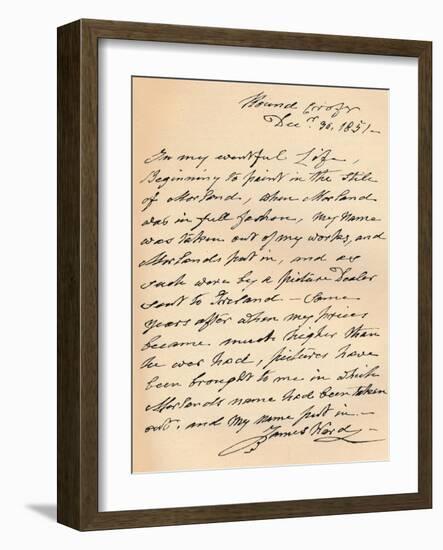 Round Croft
Decr 30, 1851-
In my eventful Life,
Beginning to paint in the stile
of Morland, when Morland
was in full fashion, my name
was taken out of my works, and
Morlands put in, and as
such were by a picture Dealer
sent to Ireland — Some
years after when my prices
became much higher than
he ever had, pictures have
been brought to me in which
Morlands name had been taken
out, and my name put in.—
James Ward-